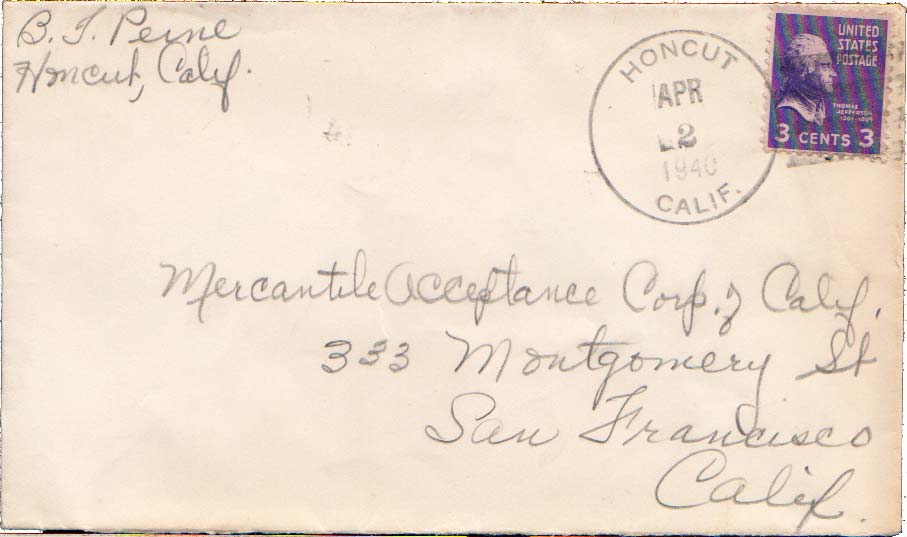 B. F. Peine
Honcut, Calif.
HONCUT
APR
2
1940
CALIF.
UNITED
STATES
POSTAGE
THOMAS
JEFFERSON
1801-1809
3 CENTS 3
Mercantile Acceptance Corp. of Calif.
333 Montgomery St
San Francisco
Calif.